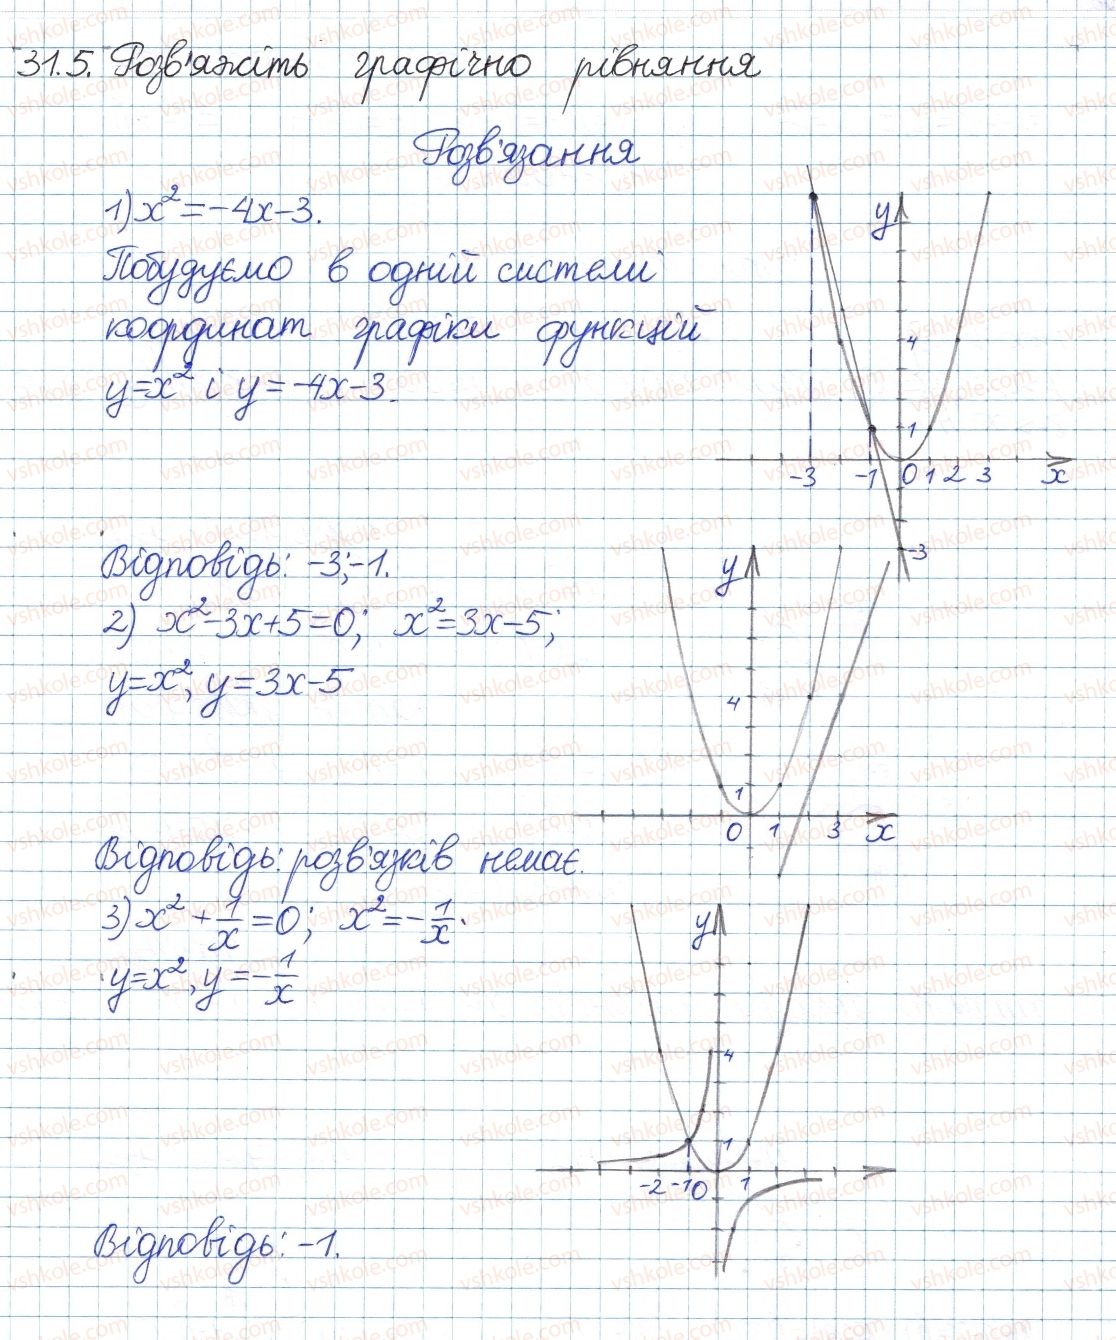 31.5. Розв'яжіть графічно рівняння
Розв'язання
1) x² = -4x-3.
Побудуємо в одній системі
координат графіки функцій
y=x² і y = -4x-3.
y
4
1
-3 -1 0 1 2 3 x
-3
Відповідь: -3; -1.
2) x²-3x+5=0; x²=3x-5;
y=x², y=3x-5
y
4
1
0 1 3 x
Відповідь: розв'язків немає.
3) x² + 1/x = 0; x² = -1/x.
y=x², y = -1/x
y
4
1
-2 -1 0 1
Відповідь: -1.
vshkole.com